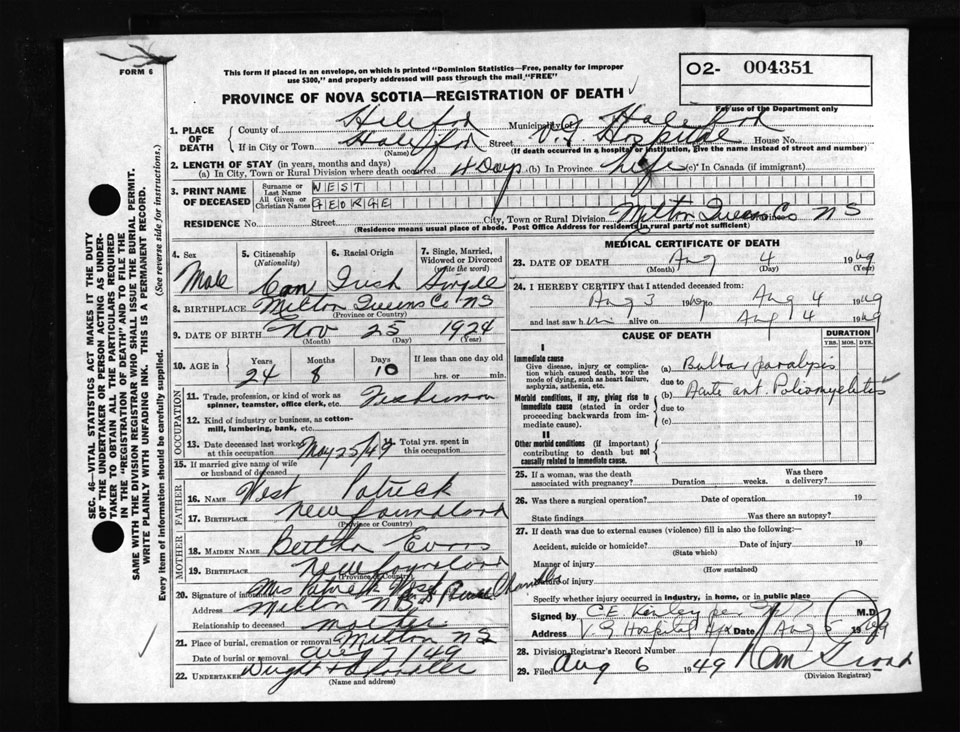 FORM 6
This form if placed in an envelope, on which is printed "Dominion Statistics—Free, penalty for improper
use $300," and properly addressed will pass through the mail "FREE"
PROVINCE OF NOVA SCOTIA—REGISTRATION OF DEATH
O2- 004351
For use of the Department only
1. PLACE OF DEATH
County of Halifax Municipality of Halifax
If in City or Town Halifax (Name) Street V.G. Hospital House No.
(If death occurred in a hospital or institution, give the name instead of street and number)
2. LENGTH OF STAY (in years, months and days)
(a) In City, Town or Rural Division where death occurred 4 Days (b) In Province Life (c) In Canada (if immigrant)
3. PRINT NAME OF DECEASED
Surname or Last Name WEST
All Given or Christian Names GEORGE
RESIDENCE No. Street City, Town or Rural Division Milton Queens Co NS
(Residence means usual place of abode. Post Office Address for residents in rural parts not sufficient)
4. Sex Male
5. Citizenship (Nationality) Can
6. Racial Origin Irish
7. Single, Married, Widowed or Divorced (write the word) Single
8. BIRTHPLACE Milton Queens Co NS
(Province or Country)
9. DATE OF BIRTH Nov 25 1924
(Month) (Day) (Year)
10. AGE Years 24 Months 8 Days 10 If less than one day old hrs. or min.
OCCUPATION
11. Trade, profession, or kind of work as spinner, teamster, office clerk, etc. Fisherman
12. Kind of industry or business, as cotton-mill, lumbering, bank, etc.
13. Date deceased last worked at this occupation May 25/49 Total yrs. spent in this occupation
15. If married give name of wife or husband of deceased
FATHER
16. NAME West Patrick
17. BIRTHPLACE Newfoundland
(Province or Country)
MOTHER
18. MAIDEN NAME Bertha Evans
19. BIRTHPLACE Newfoundland
(Province or Country)
20. Signature of informant Mrs Patrick West
Address Milton
Relationship to deceased mother
21. Place of burial, cremation or removal Milton NS
Date of burial or removal Aug 7/49
22. UNDERTAKER Dwight + Chandler
(Name and address)
MEDICAL CERTIFICATE OF DEATH
23. DATE OF DEATH Aug 4 1949
(Month) (Day) (Year)
24. I HEREBY CERTIFY that I attended deceased from:
Aug 3 1949 to Aug 4 1949
and last saw him alive on Aug 4 1949
CAUSE OF DEATH
DURATION
YRS. MOS. DYS.
I
Immediate cause
Give disease, injury or complication which caused death, not the mode of dying, such as heart failure, asphyxia, asthenia, etc.
(a) Bulbar paralysis
due to
Morbid conditions, if any, giving rise to immediate cause (stated in order proceeding backwards from immediate cause).
(b) Acute ant Poliomyelitis
due to
(c)
II
Other morbid conditions (if important) contributing to death but not causally related to immediate cause.
25. If a woman, was the death associated with pregnancy? Duration weeks. Was there a delivery?
26. Was there a surgical operation? Date of operation 19
State findings Was there an autopsy?
27. If death was due to external causes (violence) fill in also the following:—
Accident, suicide or homicide? Date of injury 19
(State which)
Manner of injury
(How sustained)
Nature of injury
Specify whether injury occurred in industry, in home, or in public place
Signed by C.E. Kenley per M.D.
Address V.G Hospital Hfx Date Aug 5 1949
28. Division Registrar's Record Number
29. Filed Aug 6 1949
(Division Registrar)
SEC. 46—VITAL STATISTICS ACT MAKES IT THE DUTY
OF THE UNDERTAKER OR PERSON ACTING AS UNDER-
TAKER TO OBTAIN ALL THE PARTICULARS REQUIRED
IN THE "REGISTRATION OF DEATH" AND TO FILE THE
SAME WITH THE DIVISION REGISTRAR WHO SHALL ISSUE THE BURIAL PERMIT.
WRITE PLAINLY WITH UNFADING INK. THIS IS A PERMANENT RECORD.
Every item of information should be carefully supplied. (See reverse side for instructions.)